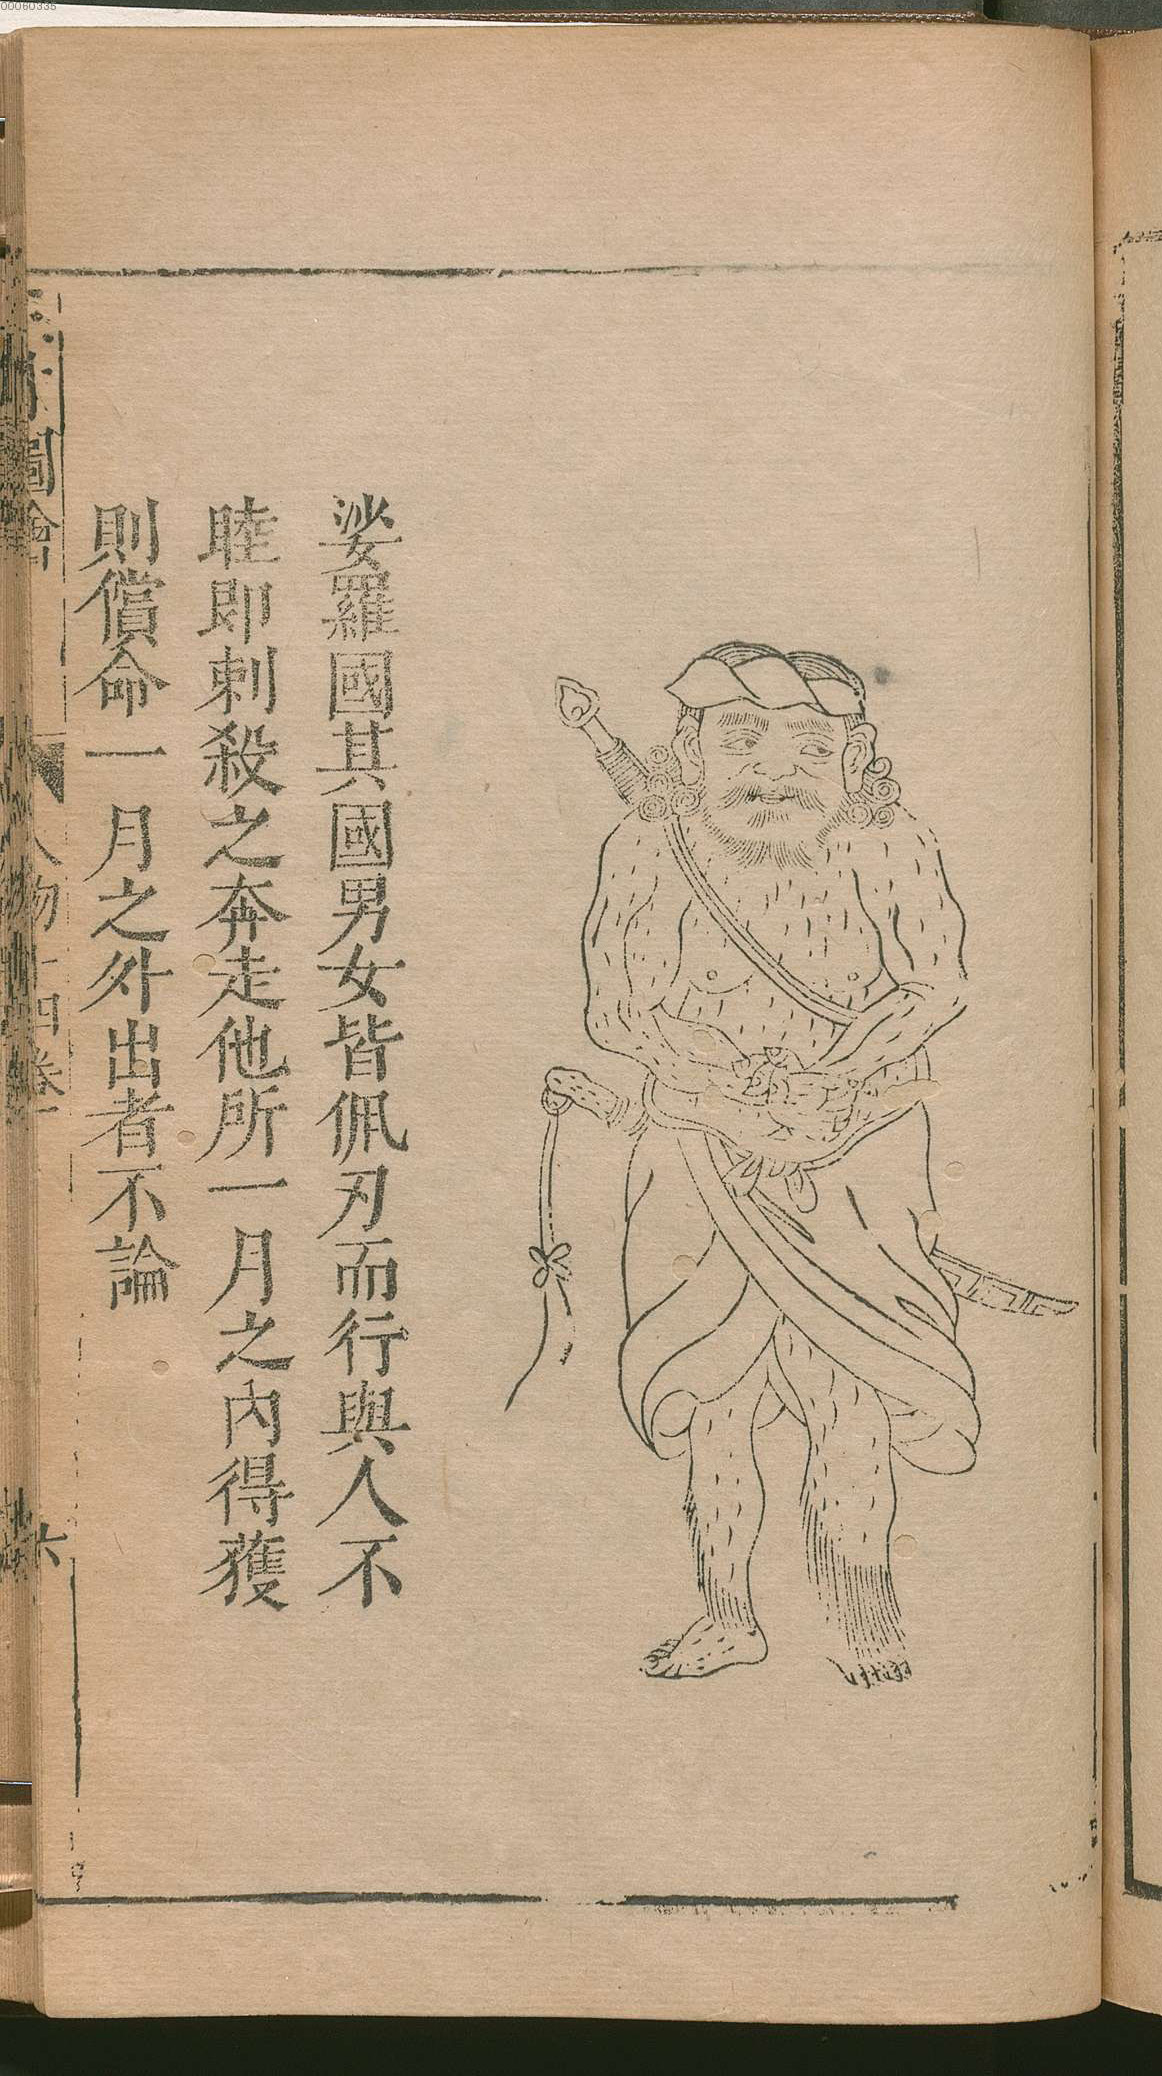 00060335
娑羅國其國男女皆佩刃而行與人不
睦即刺殺之奔走他所一月之内得獲
則償命一月之外出者不論
圖會
人物十四卷
六